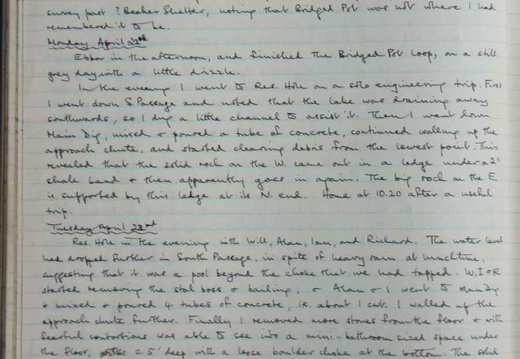 survey part ? Beaker Shelter, noting that Bridged Pot was not where I had
remembered it to be.
Monday April 22nd
Ebbor in the afternoon, and finished the Bridged Pot loop, on a still
grey day with a little drizzle.
In the evening I went to Res. Hole on a solo engineering trip. First
I went down S Passage and noted that the lake was draining away
southwards, so I dug a little channel to assist it. Then I went down
Main Dig, mixed & poured a tube of concrete, continued walling up the
approach chute, and started clearing debris from the lowest point. This
revealed that the solid rock on the W. came out in a ledge under a 2"
shale band & then apparently goes in again. The big rock on the E
is supported by this ledge at its N. end. Home at 10.20 after a useful
trip.
Tuesday April 23rd
Res. Hole in the evening with Will, Alan, Ian, and Richard. The water level
had dropped further in South Passage, in spite of heavy rain at lunchtime,
suggesting that it was a pool beyond the choke that we had tapped. W, I & R
started removing the stal boss & bailing, & Alan & I went to Main Dig
& mixed & poured 4 tubes of concrete, i.e. about 1 cwt. I walled up the
approach chute further. Finally I removed more stones from the floor & with
fearful contortions was able to see into a mini-bathroom sized space under
the floor, 0.5' deep with a loose boulder choke at the bottom. The solid